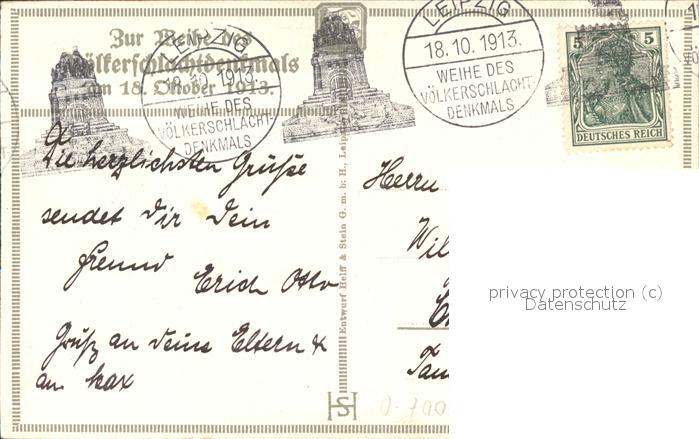 Zur Weihe des
Völkerschlachtdenkmals
am 18. Oktober 1913.
LEIPZIG
18.10.1913.
WEIHE DES
VÖLKERSCHLACHT-
DENKMALS
LEIPZIG
18.10.1913.
WEIHE DES
VÖLKERSCHLACHT-
DENKMALS
5 5
DEUTSCHES REICH
Die herzlichsten Grüße
sendet dir dein
Freund
Erich Otto
Gruß an deine Eltern &
an Max
Entwurf Helff & Stein G. m. b. H., Leipzig
Herrn
Wil
privacy protection (c)
Datenschutz
HS